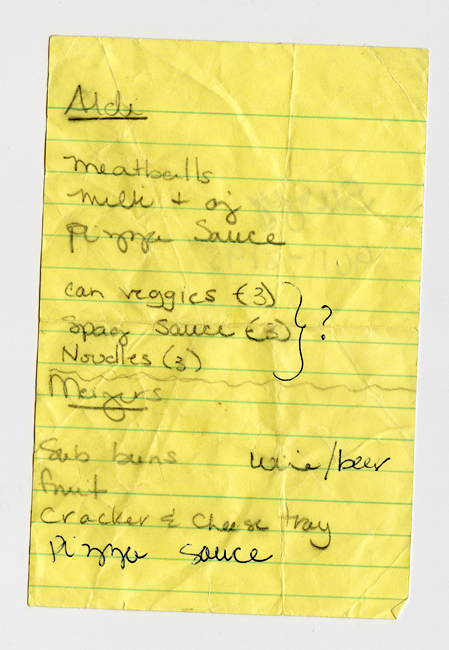 Aldi
meatballs
milk + oj
Pizza Sauce
can veggies (3)
Spag Sauce (3) } ?
Noodles (3)
Meijers
Sub buns wine/beer
fruit
Cracker & Cheese tray
Pizza Sauce